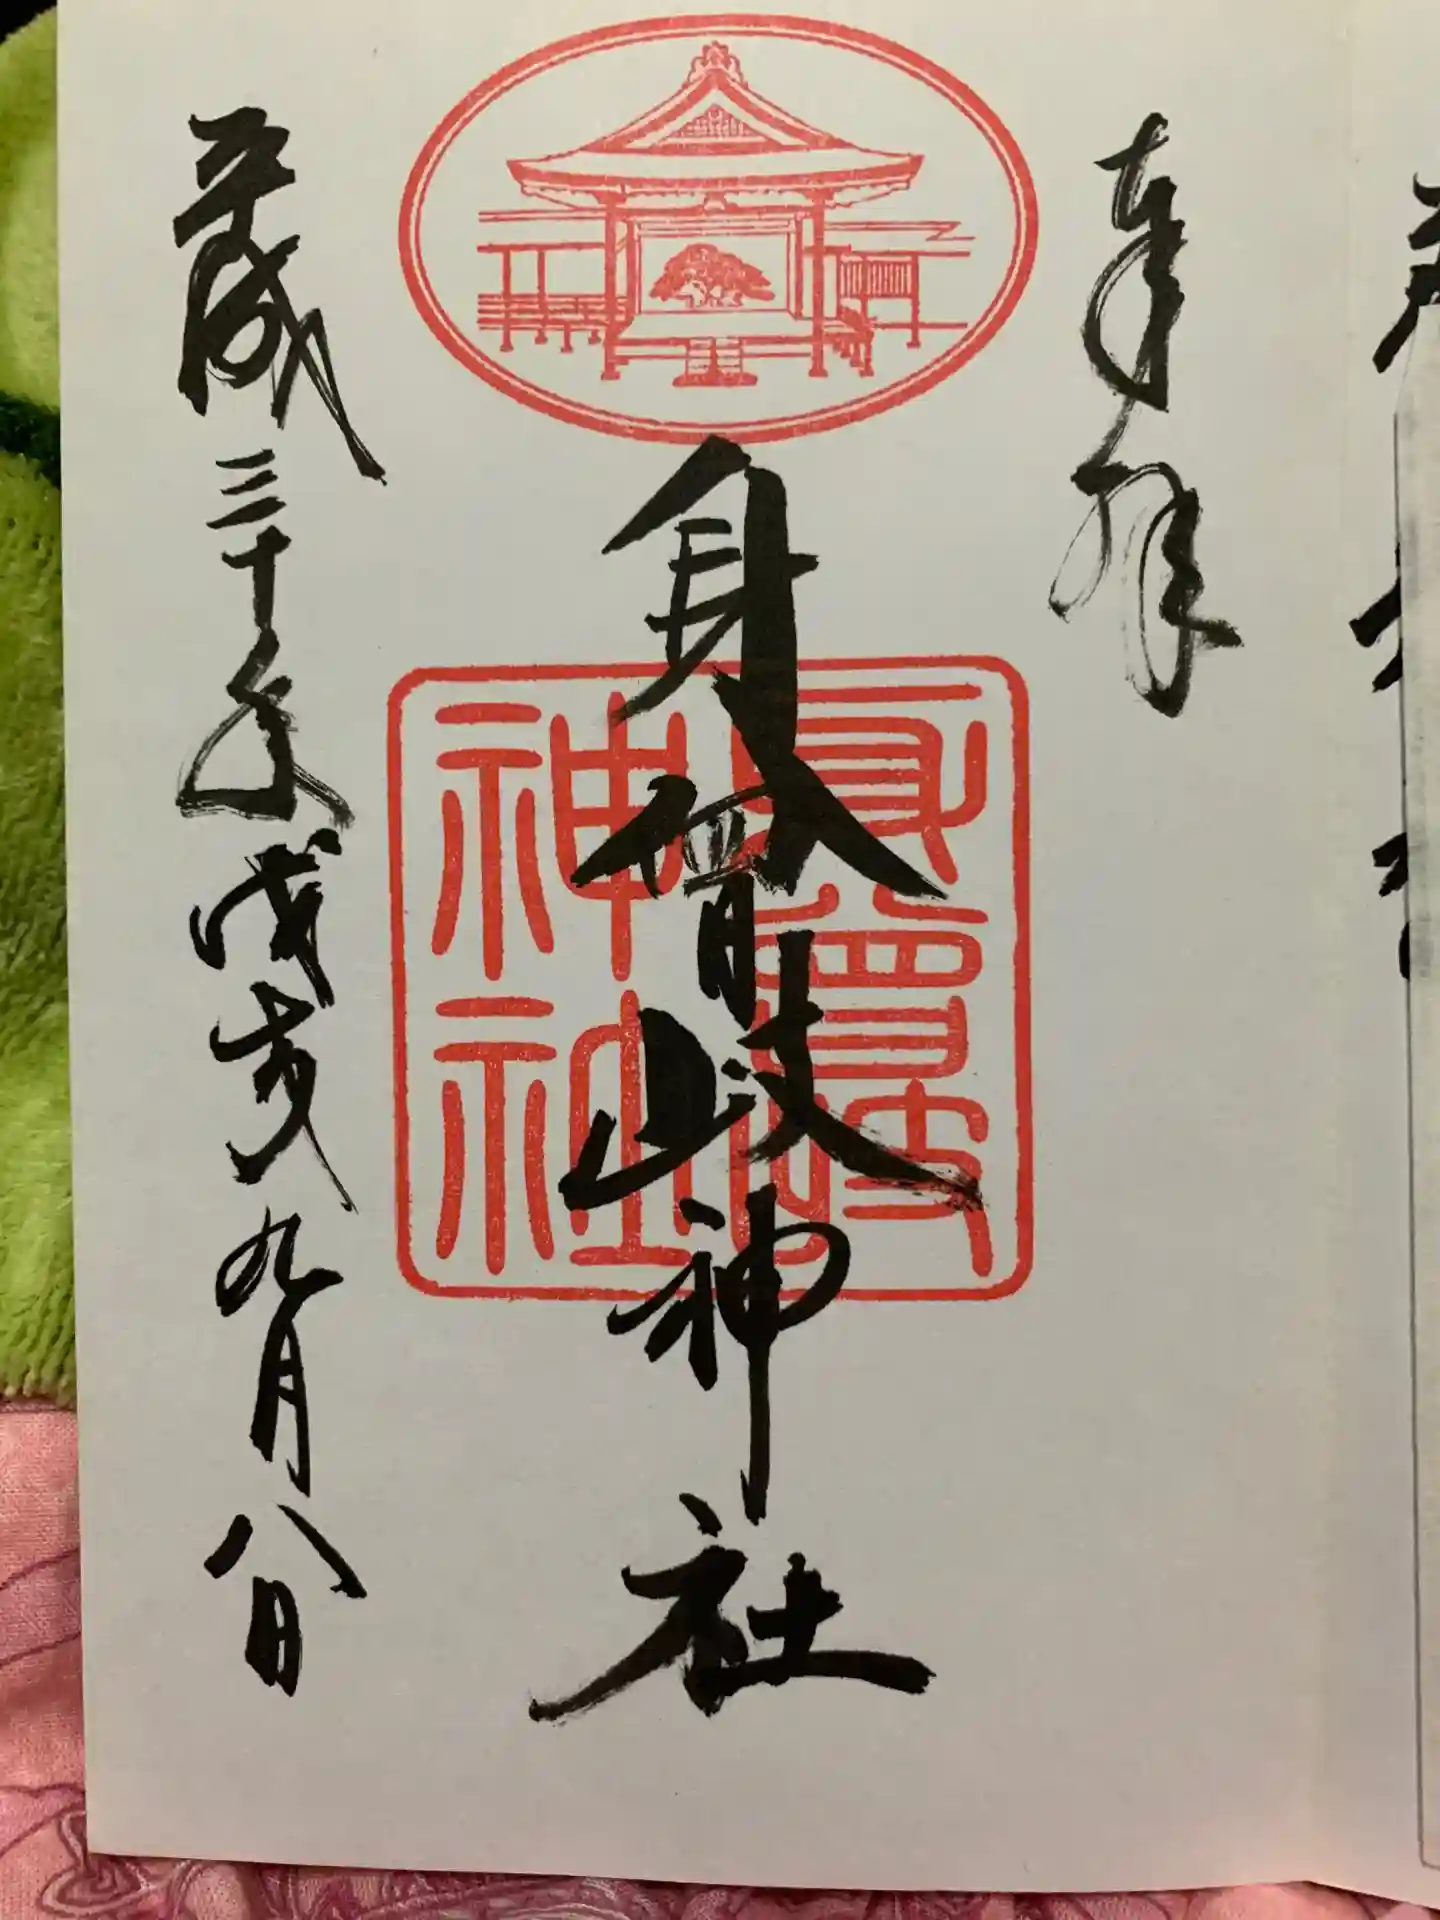 奉拝
身曾岐神社
平成三十年戊戌九月八日
身曾岐
神社